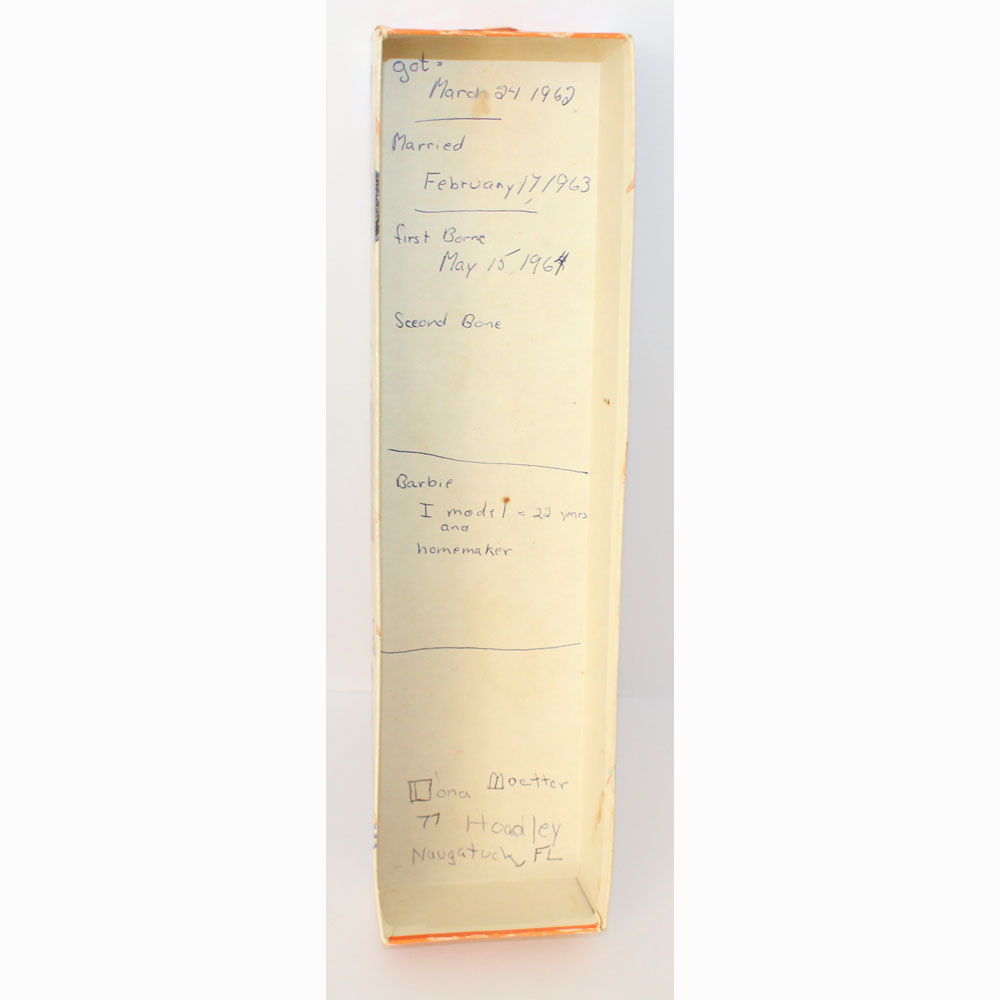 got =
March 24 1962
Married
February 17, 1963
first Borne
May 15, 1964
Sceond Bone
Barbie
I model = 22 years
and
homemaker
Dona Moetter
77 Hoadley
Naugatuck, FL